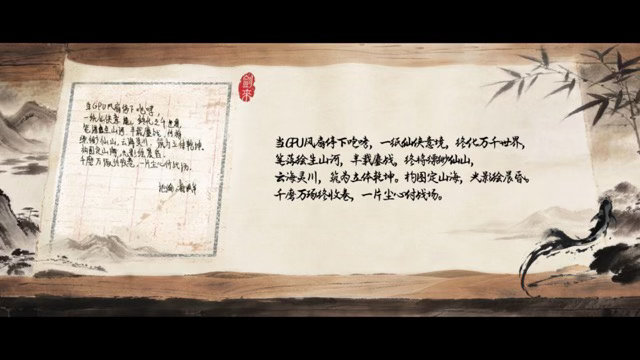 当GPU风扇停下咆哮
一纸仙侠意境，终化万千世界
笔落绘生山河，半载鏖战，终将
缥缈仙山，云海灵川，筑为立体乾坤
构图定山海，光影绘晨昏
千磨万砺终收卷，一片尘心付战场
剑来
当GPU风扇停下咆哮，一纸仙侠意境，终化万千世界，
笔落绘生山河，半载鏖战，终将缥缈仙山，
云海灵川，筑为立体乾坤。构图定山海，光影绘晨昏。
千磨万砺终收卷，一片尘心付战场。